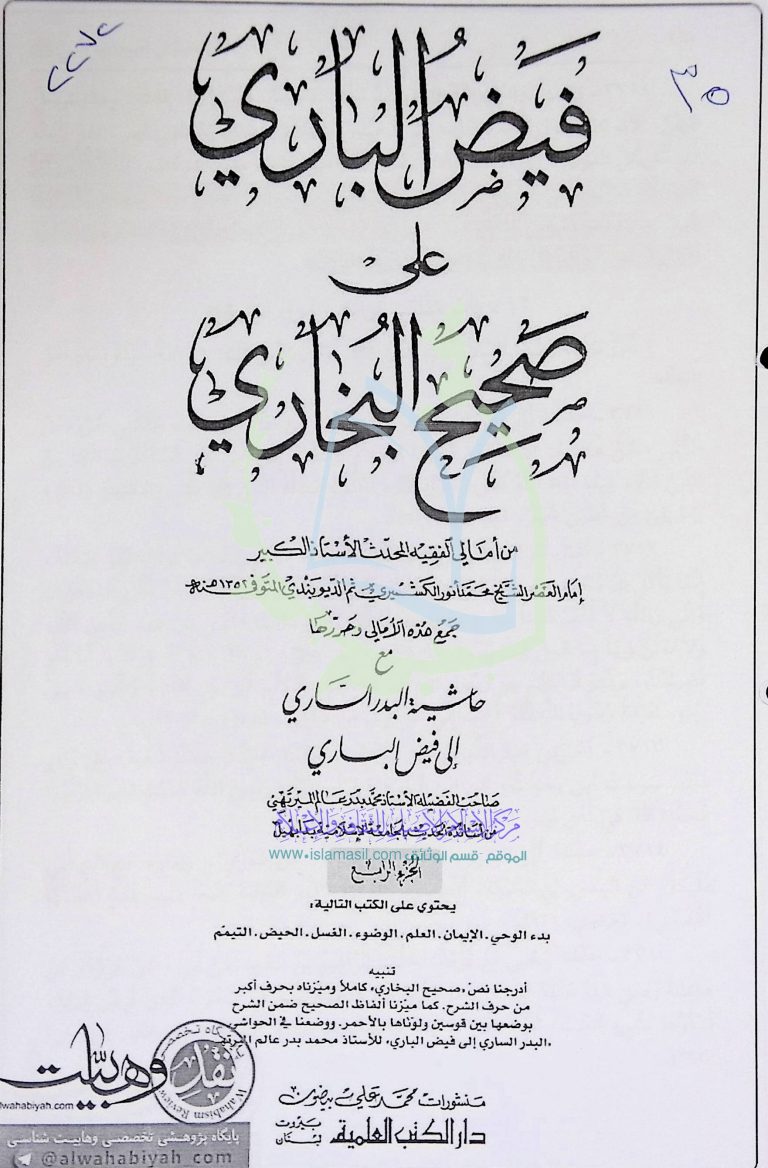 ٣٥
٢٢٧٢
فيض الباري
على
صحيح البخاري
من أمالي الفقيه المحدث الأستاذ الكبير
إمام العصر الشيخ محمد أنور الكشميري ثم الديوبندي المتوفى سنة ١٣٥٢هـ
جمع هذه الأمالي وحررها
مع
حاشية البدر الساري
إلى فيض الباري
صاحب الفضيلة الأستاذ محمد بدر عالم الميرتهي
من أساتذة الحديث بالجامعة الإسلامية بدابهيل
الموقع - قسم الوثائق www.islamasil.com
الجزء الرابع
يحتوي على الكتب التالية:
بدء الوحي. الإيمان. العلم. الوضوء. الغسل. الحيض. التيمّم
تنبيه
أدرجنا نصّ «صحيح البخاري» كاملاً وميّزناه بحرف أكبر
من حرف الشرح. كما ميّزنا ألفاظ الصحيح ضمن الشرح
بوضعها بين قوسين ولوّناها بالأحمر. ووضعنا في الحواشي
«البدر الساري إلى فيض الباري» للأستاذ محمد بدر عالم
منشورات محمد علي بيضون
دار الكتب العلمية
بيروت لبنان
نقد وهابيت
Wahabism Review
alwahabiyah.com
پایگاه پژوهشی تخصصی وهابیت شناسی
@alwahabiyah_com